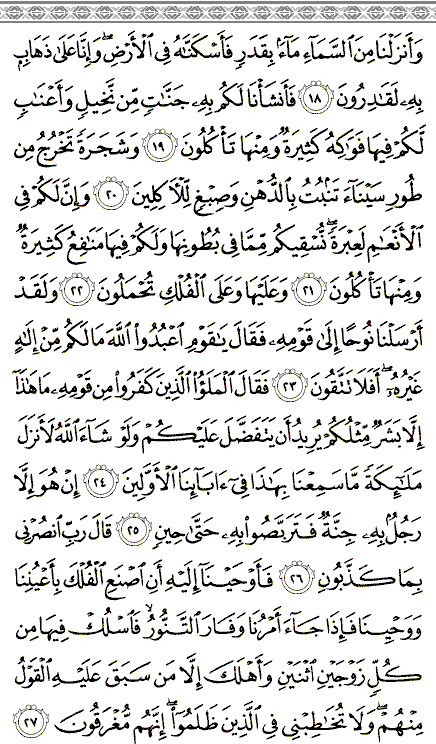 وَأَنزَلْنَا مِنَ ٱلسَّمَآءِ مَآءَۢ بِقَدَرٍ فَأَسْكَنَّٰهُ فِى ٱلْأَرْضِ ۖ وَإِنَّا عَلَىٰ ذَهَابٍۭ
بِهِۦ لَقَٰدِرُونَ ١٨ فَأَنشَأْنَا لَكُم بِهِۦ جَنَّٰتٍ مِّن نَّخِيلٍ وَأَعْنَٰبٍ
لَّكُمْ فِيهَا فَوَٰكِهُ كَثِيرَةٌ وَمِنْهَا تَأْكُلُونَ ١٩ وَشَجَرَةً تَخْرُجُ مِن
طُورِ سَيْنَآءَ تَنۢبُتُ بِٱلدُّهْنِ وَصِبْغٍ لِّلْءَاكِلِينَ ٢٠ وَإِنَّ لَكُمْ فِى
ٱلْأَنْعَٰمِ لَعِبْرَةً ۖ نُّسْقِيكُم مِّمَّا فِى بُطُونِهَا وَلَكُمْ فِيهَا مَنَٰفِعُ كَثِيرَةٌ
وَمِنْهَا تَأْكُلُونَ ٢١ وَعَلَيْهَا وَعَلَى ٱلْفُلْكِ تُحْمَلُونَ ٢٢ وَلَقَدْ
أَرْسَلْنَا نُوحًا إِلَىٰ قَوْمِهِۦ فَقَالَ يَٰقَوْمِ ٱعْبُدُوا۟ ٱللَّهَ مَا لَكُم مِّنْ إِلَٰهٍ
غَيْرُهُۥٓ ۖ أَفَلَا تَتَّقُونَ ٢٣ فَقَالَ ٱلْمَلَؤُا۟ ٱلَّذِينَ كَفَرُوا۟ مِن قَوْمِهِۦ مَا هَٰذَآ
إِلَّا بَشَرٌ مِّثْلُكُمْ يُرِيدُ أَن يَتَفَضَّلَ عَلَيْكُمْ وَلَوْ شَآءَ ٱللَّهُ لَأَنزَلَ
مَلَٰٓئِكَةً مَّا سَمِعْنَا بِهَٰذَا فِىٓ ءَابَآئِنَا ٱلْأَوَّلِينَ ٢٤ إِنْ هُوَ إِلَّا
رَجُلٌۢ بِهِۦ جِنَّةٌ فَتَرَبَّصُوا۟ بِهِۦ حَتَّىٰ حِينٍ ٢٥ قَالَ رَبِّ ٱنصُرْنِى
بِمَا كَذَّبُونِ ٢٦ فَأَوْحَيْنَآ إِلَيْهِ أَنِ ٱصْنَعِ ٱلْفُلْكَ بِأَعْيُنِنَا
وَوَحْيِنَا فَإِذَا جَآءَ أَمْرُنَا وَفَارَ ٱلتَّنُّورُ ۙ فَٱسْلُكْ فِيهَا مِن
كُلٍّ زَوْجَيْنِ ٱثْنَيْنِ وَأَهْلَكَ إِلَّا مَن سَبَقَ عَلَيْهِ ٱلْقَوْلُ
مِنْهُمْ ۖ وَلَا تُخَٰطِبْنِى فِى ٱلَّذِينَ ظَلَمُوٓا۟ ۖ إِنَّهُم مُّغْرَقُونَ ٢٧